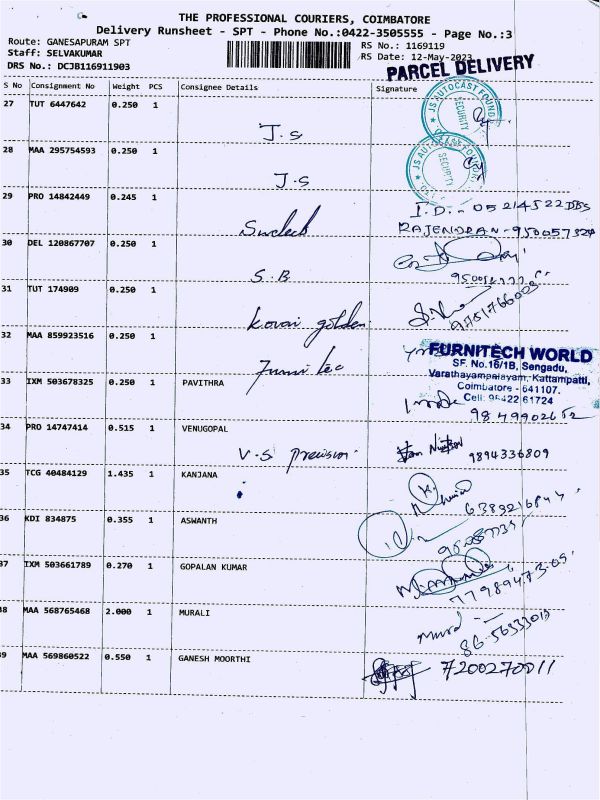 THE PROFESSIONAL COURIERS, COIMBATORE
Delivery Runsheet - SPT - Phone No.:0422-3505555 - Page No.:3
Route: GANESAPURAM SPT
RS No.: 1169119
Staff: SELVAKUMAR
RS Date: 12-May-2023
DRS No.: DCJB116911903
PARCEL DELIVERY
S No Consignment No Weight PCS Consignee Details Signature
27 TUT 6447642 0.250 1
J.S
JS AUTOCAST FOUND
SECURITY
28 MAA 295754593 0.250 1
J.S
SECURITY
29 PRO 14842449 0.245 1
I.D.
RAJENDRAN
30 DEL 120867707 0.250 1
S.B
31 TUT 174909 0.250 1
Kovai golden
32 MAA 859923516 0.250 1
Furni tec
FURNITECH WORLD
SF. No.16/1B, Sengadu,
Varathayampalayam, Kattampatti,
Coimbatore - 641107.
Cell: 96422 61724
33 IXM 503678325 0.250 1 PAVITHRA
34 PRO 14747414 0.515 1 VENUGOPAL
V.S Precision
9894336809
35 TCG 40484129 1.435 1 KANJANA
36 KDI 834875 0.355 1 ASWANTH
37 IXM 503661789 0.270 1 GOPALAN KUMAR
38 MAA 568765468 2.000 1 MURALI
39 MAA 569860522 0.550 1 GANESH MOORTHI
7200270011